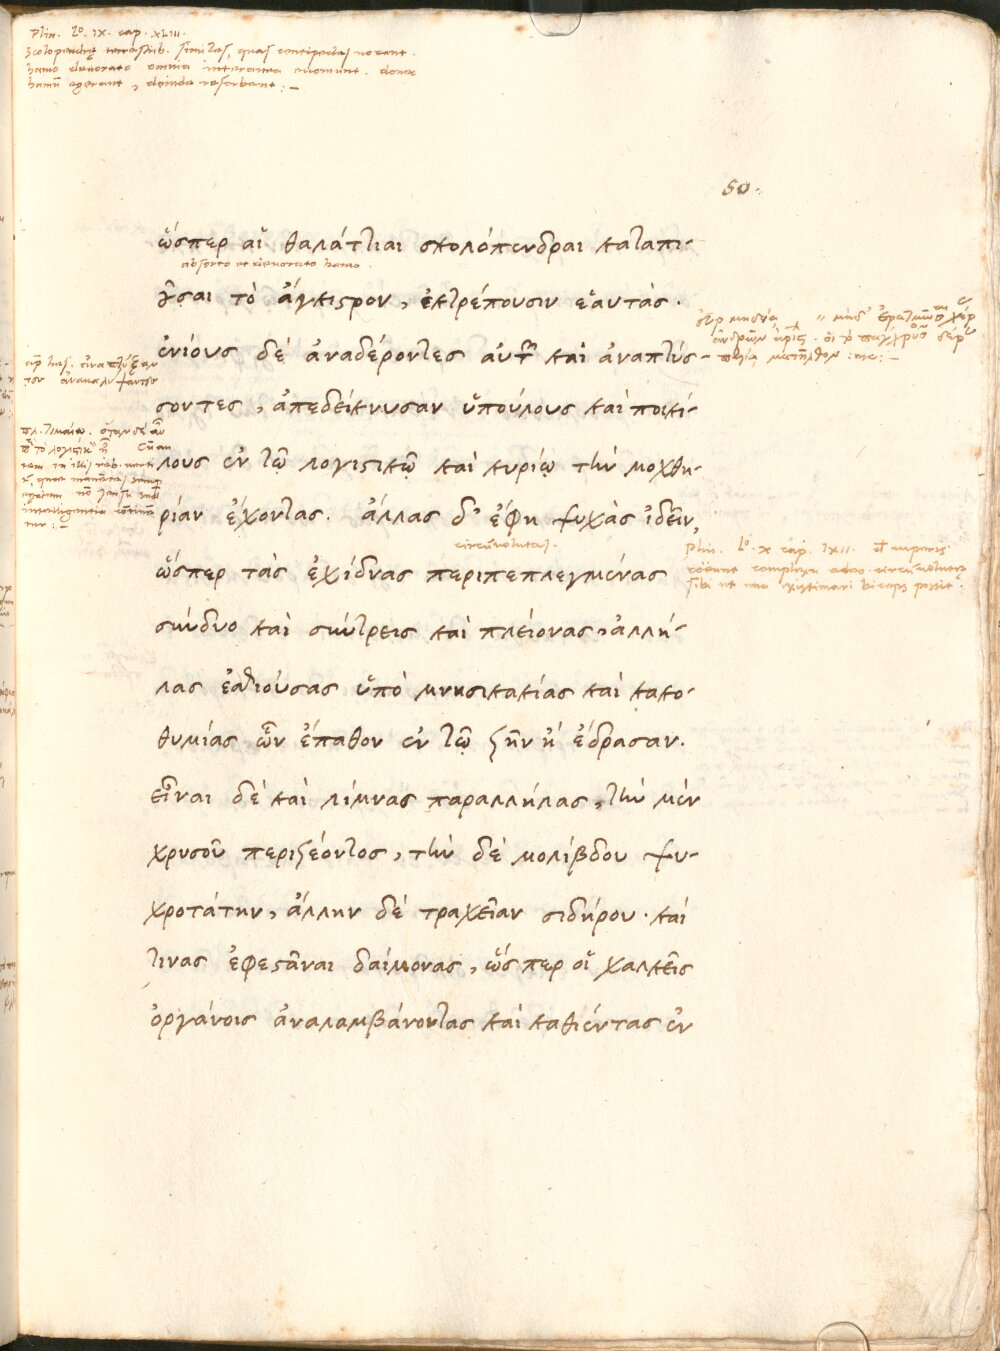 Plin. lo. IX. cap. XLIII.
Scolopendrę terrestrib. similes, quas centipedes uocant.
hamo deuorato omnia interanea euomunt. donec
hamū egerant, deinde resorbent :-
50.
ὥσπερ αἱ θαλάττιαι σκολόπενδραι καταπι-
absorto et deuorato hamo.
οῦσαι τὸ ἄγκιστρον, ἐκτρέπουσιν ἑαυτάς.
ἐνίους δὲ ἀναδέροντες αὐτῶν καὶ ἀναπτύσ-
σοντες, ἀπεδείκνυσαν ὑπούλους καὶ ποικί-
λους ἐν τῷ λογιστικῷ καὶ κυρίῳ τὴν μοχθη-
ρίαν ἔχοντας. ἄλλας δ' ἔφη ψυχὰς ἰδεῖν,
circūuolutas.
ὥσπερ τὰς ἐχίδνας περιπεπλεγμένας
σύνδυο καὶ σύντρεις καὶ πλείονας, ἀλλή-
λας ἐσθιούσας ὑπὸ μνησικακίας καὶ κακο-
θυμίας ὧν ἔπαθον ἐν τῷ ζῆν ἢ ἔδρασαν.
εἶναι δὲ καὶ λίμνας παραλλήλας, τὴν μὲν
χρυσοῦ περιζέοντος, τὴν δὲ μολίβδου ψυ-
χροτάτην, ἄλλην δὲ τραχεῖαν σιδήρου. καί
τινας ἐφεστᾶναι δαίμονας, ὥσπερ οἱ χαλκεῖς
ὀργάνοις ἀναλαμβάνοντας καὶ καθιέντας ἐν
ἀναπτύξαν
ἀνακαλύψαντες
πλ. Τιμαίῳ. ὅταν δὲ
τὸ λογιστικὸν
Plin. lo. x cap. lxii. uiperis
coeunt complexu adeo circūuolutę
sibi ut una existimari biceps possit.